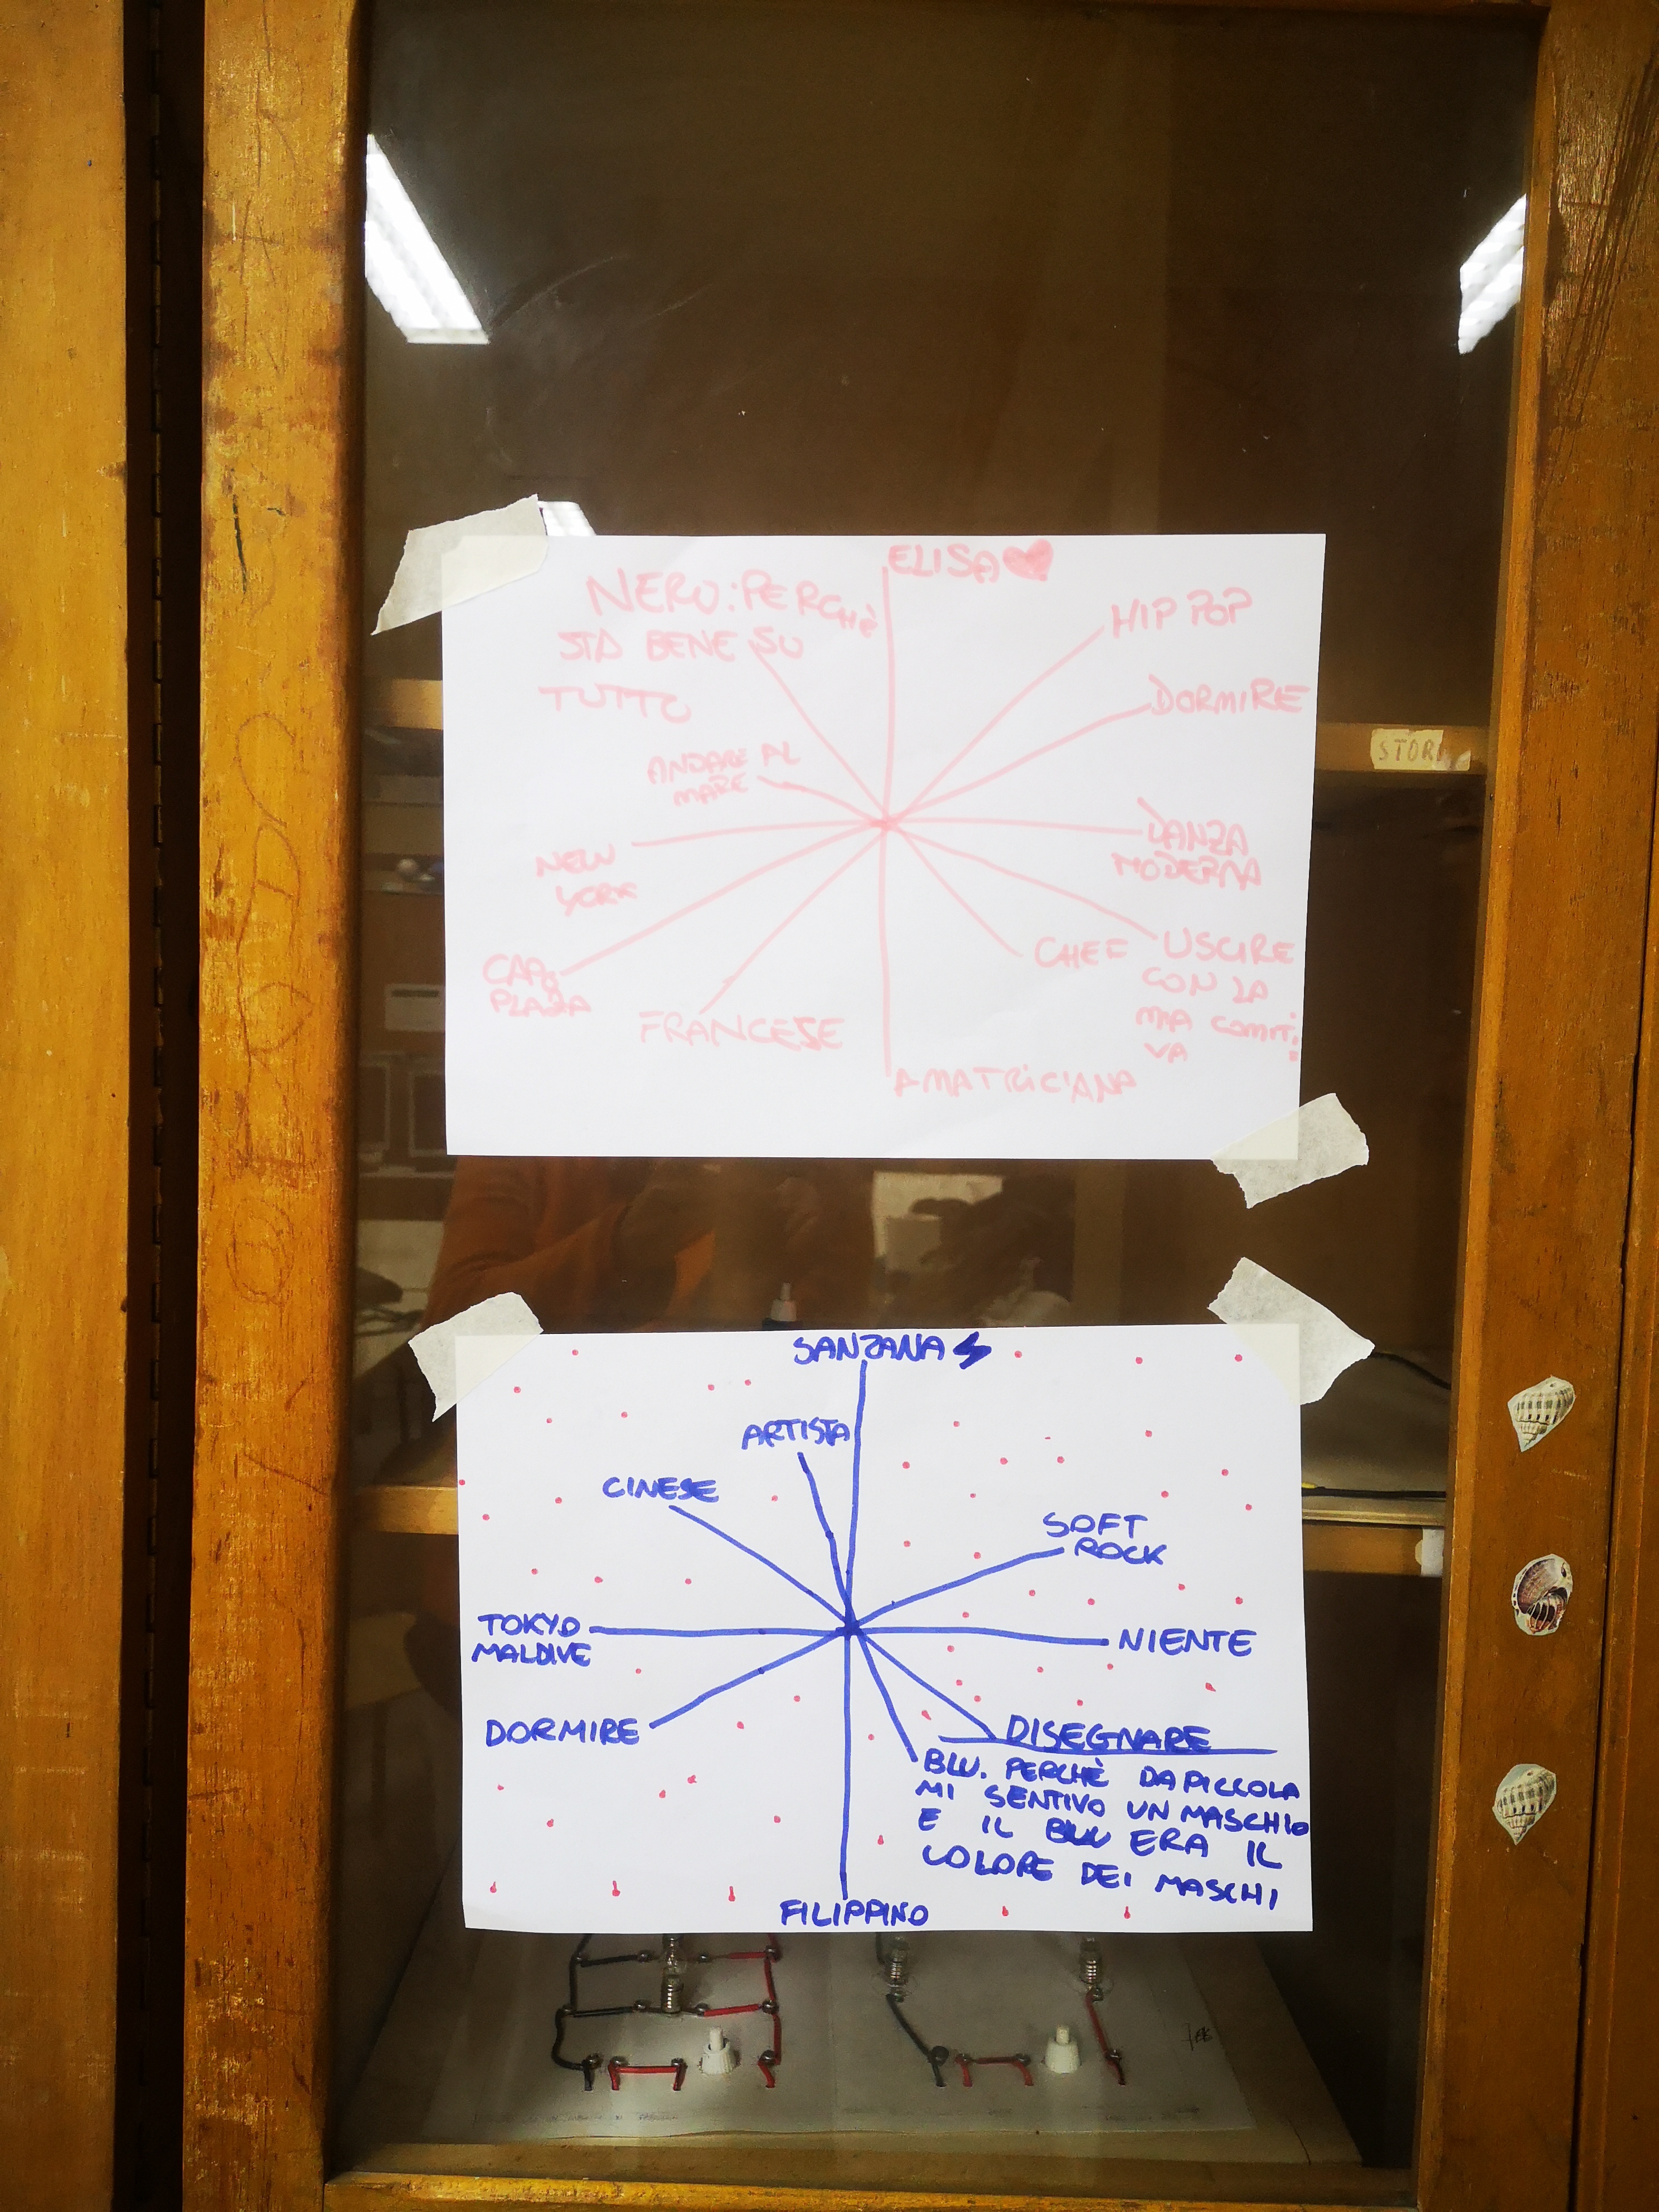 ELISA
NERO: PERCHÈ
STA BENE SU
TUTTO
HIP POP
DORMIRE
ANDARE AL
MARE
DANZA
MODERNA
NEW
YORK
CHEF
USCIRE
CON LA
MIA COMITI
VA
CAPO
PLAZA
FRANCESE
AMATRICIANA
STORI
SANZANA
ARTISTA
CINESE
SOFT
ROCK
TOKYO
MALDIVE
NIENTE
DORMIRE
DISEGNARE
BLU. PERCHÈ DA PICCOLA
MI SENTIVO UN MASCHIO
E IL BLU ERA IL
COLORE DEI MASCHI
FILIPPINO